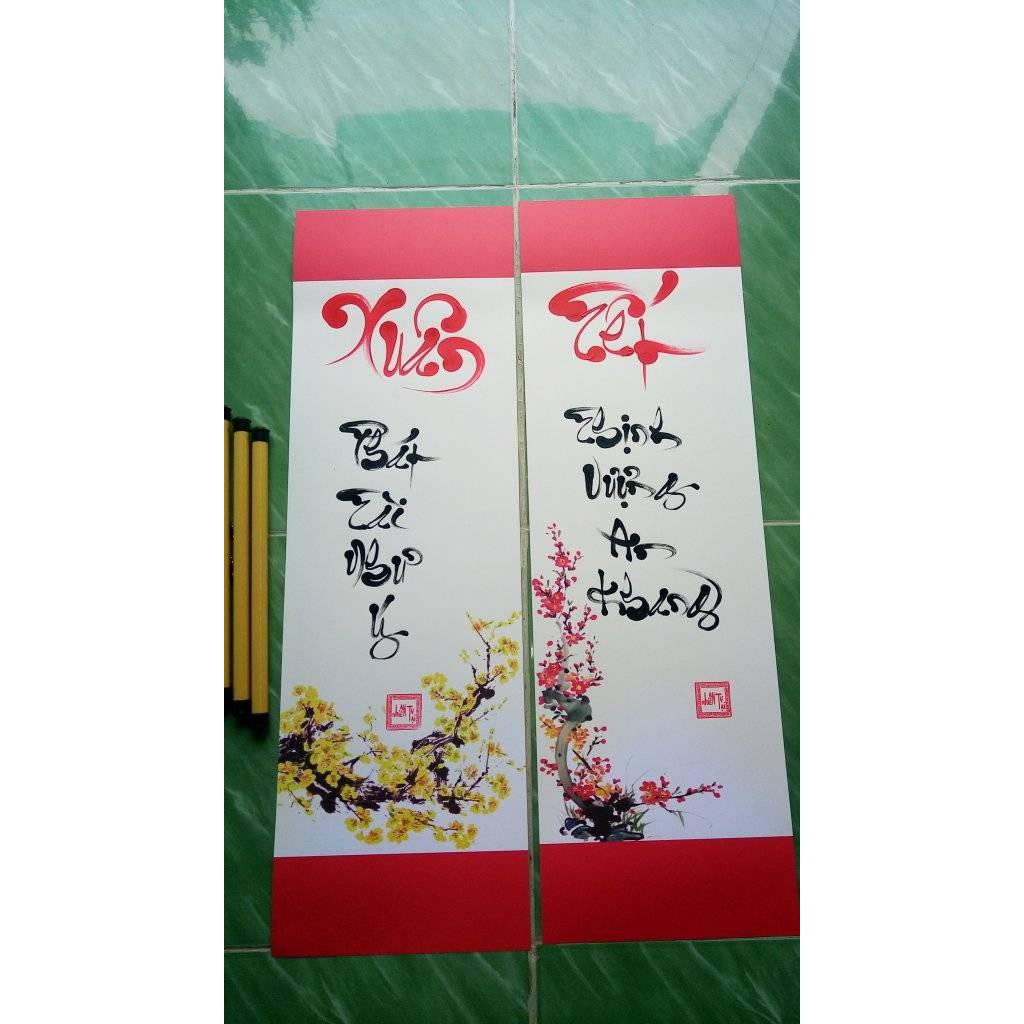 Xuân
Phát
Tài
Như
Ý
Tết
Thịnh
Vượng
An
Khang